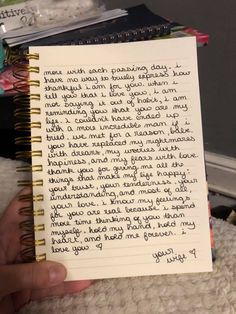 itively
more with each passing day. i
have no way to truly express how
thankful i am for you. when i
tell you that i love you, i am
not saying it out of habit, i am
reminding you that you are my
life. i couldn't have ended up
with a more incredible man if i
tried. we met for a reason, babe.
you have replaced my nightmares
with dreams, my worries with
happiness, and my fears with love.
thank you for giving me all the
things that make my life happy:
your trust, your tenderness, your
understanding, and most of all,
your love. i know my feelings
for you are real because i spend
more time thinking of you than
myself. hold my hand, hold my
heart, and hold me forever. i
love you ♡
your
wife ♡